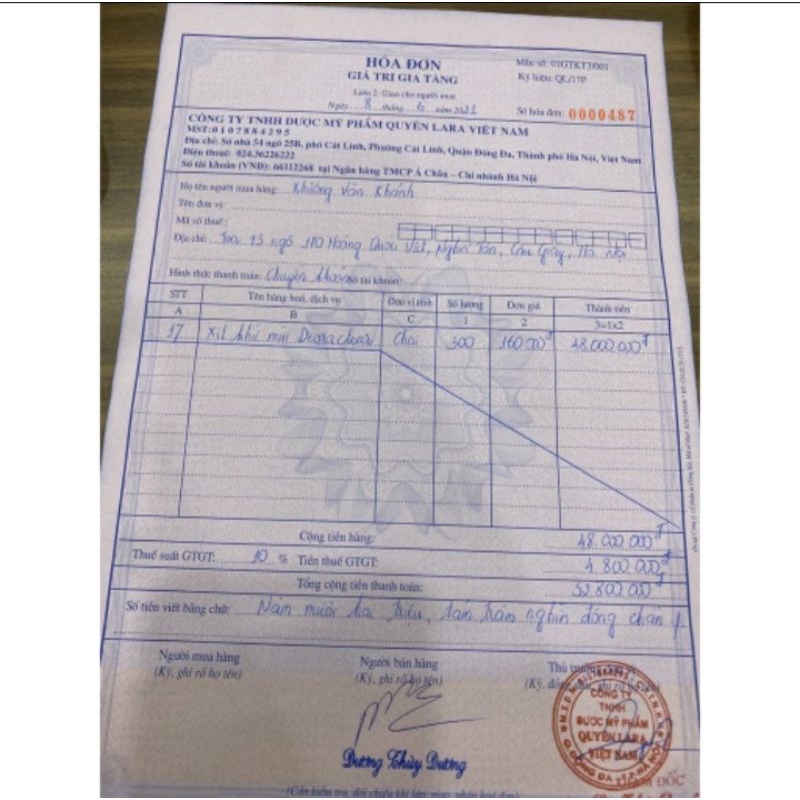 HÓA ĐƠN
GIÁ TRỊ GIA TĂNG
Liên 2: Giao cho người mua
Ngày 8 tháng 6 năm 2021
Mẫu số: 01GTKT3/001
Ký hiệu: QL/17P
Số hóa đơn: 0000487
CÔNG TY TNHH DƯỢC MỸ PHẨM QUYÊN LARA VIỆT NAM
MST: 0107884295
Địa chỉ: Số nhà 54 ngõ 25B, phố Cát Linh, Phường Cát Linh, Quận Đống Đa, Thành phố Hà Nội, Việt Nam
Điện thoại: 024.36226222
Số tài khoản (VNĐ): 66112268 tại Ngân hàng TMCP Á Châu - Chi nhánh Hà Nội
Họ tên người mua hàng: Khương Văn Khánh
Tên đơn vị:
Mã số thuế:
Địa chỉ: 13 ngõ 110 Hoàng Quốc Việt, Nghĩa Tân, Cầu Giấy, Hà Nội
Hình thức thanh toán: Chuyển khoản Số tài khoản:
STT Tên hàng hoá, dịch vụ Đơn vị tính Số lượng Đơn giá Thành tiền
A B C 1 2 3=1x2
Xịt khử mùi Chai 300 160.000đ 48.000.000đ
Cộng tiền hàng: 48.000.000đ
Thuế suất GTGT: 10 % Tiền thuế GTGT: 4.800.000đ
Tổng cộng tiền thanh toán: 52.800.000đ
Số tiền viết bằng chữ: Năm mươi hai triệu, tám trăm nghìn đồng chẵn ./
Người mua hàng Người bán hàng
(Ký, ghi rõ họ tên) (Ký, ghi rõ họ tên)
CÔNG TY
TNHH
DƯỢC MỸ PHẨM
QUYÊN LARA
VIỆT NAM
Dương Thùy Dương
GIÁM ĐỐC